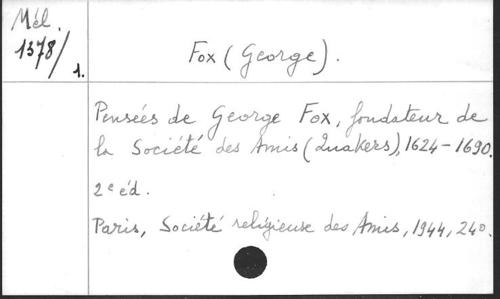 Mél.
1378/1.
Fox (George).
Pensées de George Fox, fondateur de
la Société des Amis (Quakers), 1624-1690.
2e éd.
Paris, Société religieuse des Amis, 1944, 24°.